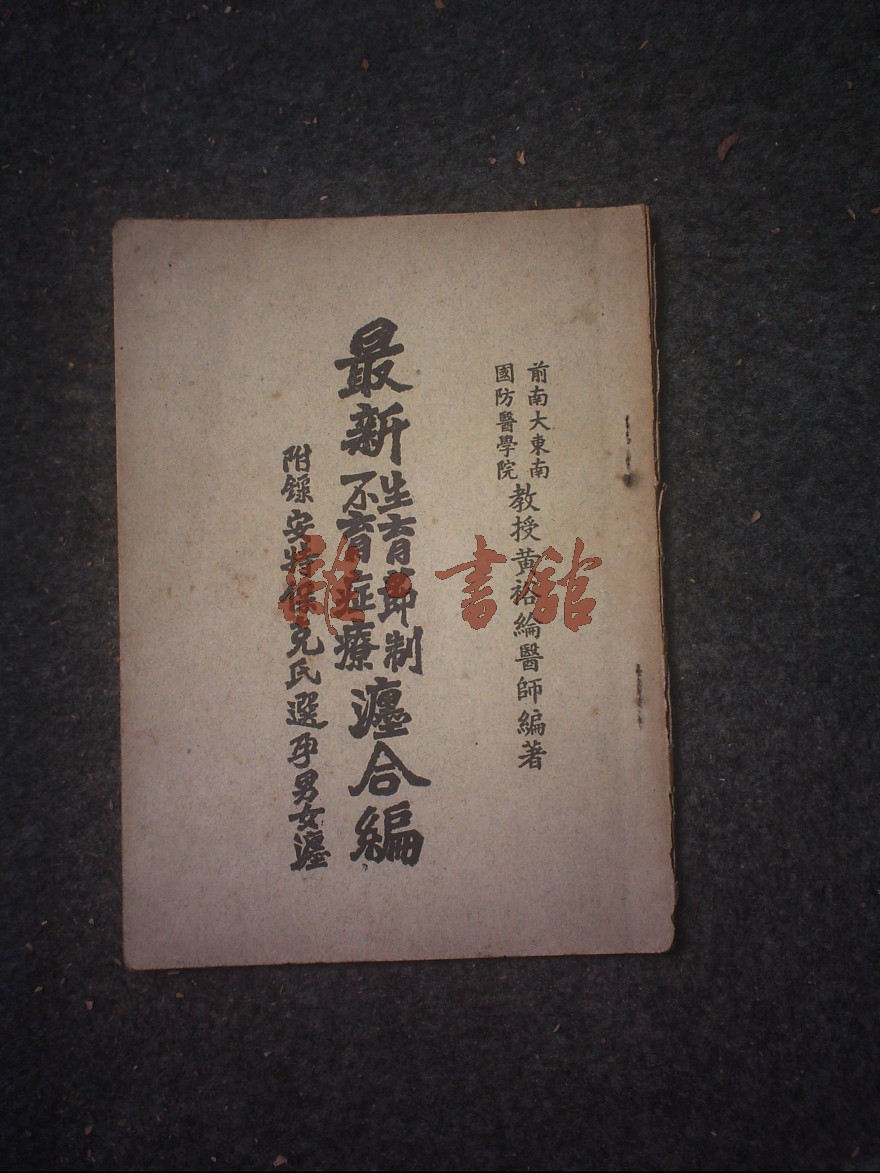 前南大東南
國防醫學院
教授黃裕綸醫師編著
最新
生育節制
不育症療
灋合編
附錄安特保克氏選孕男女灋
雜·書舘